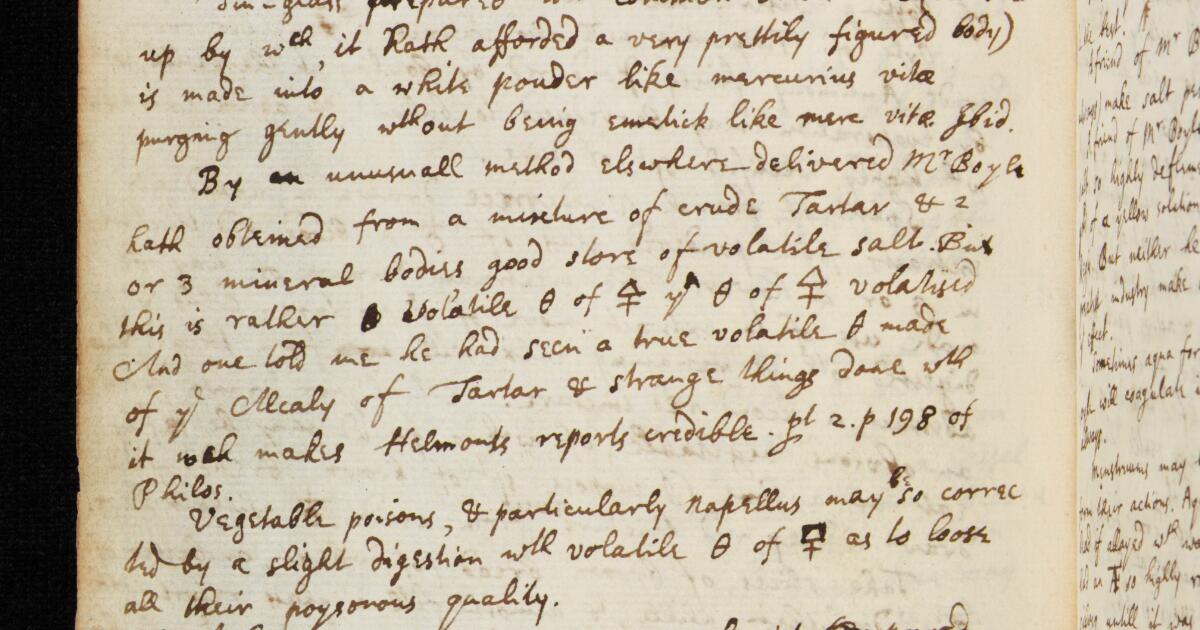 Tin-glass prepared
up by wch, it hath afforded a very prettily figured body)
is made into a white pouder like mercurius vitæ
purging gently wthout being emetick like merc vitæ. Ibid.
By an unusuall method elswhere delivered Mr Boyle
hath obteined from a mixture of crude Tartar & 2
or 3 mineral bodies good store of volatile salt. But
this is rather a volatile θ of 🜿 yn θ of 🜿 volatised
And one told me he had seen a true volatile θ made
of ye Alcaly of Tartar & strange things done wth
it wch makes Helmonts reports credible. pt 2. p 198 of
Philos.
Vegetable poisons, & particularly napellus may be so correc
ted by a slight digestion wth volatile θ of 🜿 as to loose
all their poysonous quality.
like best.
A friend of Mr B
make salt pe
A friend of Mr Boyle
so highly
of a yellow solution
But neither he
industry make
effect.
Sometimes aqua for
will coagulate
Menstruums may
their actions.
if allayed wth
so highly
untill it was